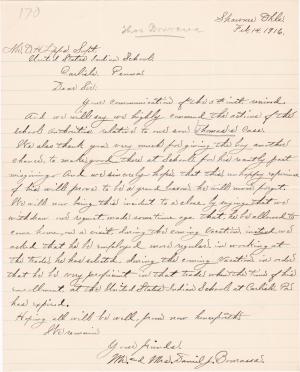 170
Shawnee Okla
Feb, 14, 1916.
Thos Bourassa
Mr. O. H. Lipps Supt.
United States Indian Schools
Carlisle Penna
Dear Sir:
Your communication of the inst received.
And we will say we highly commend the action of the
School authorities relative to our son Thomas's Case.
We also thank you very much for giving the boy another
chance, to make good there at School for his past
misgivings. And we sincerely hope that this unhappy experience
of his will prove to be a great lesson he will never forget.
We will now bring this missive to a close, by saying that we
withdraw our request made sometime ago that he be allowed to
come home, on a visit, during the coming Vacation, instead we
asked that he be employed more regular in working at
the trade he has selected, during the coming Vacation in order
that he be very proficient in that trade when the time of his
enrollment at the United States Indian Schools at Carlisle Pa
has expired.
Hoping all will be well from now henceforth
We remain
Your friends.
Mr. and Mrs. Daniel J. Bourassa.